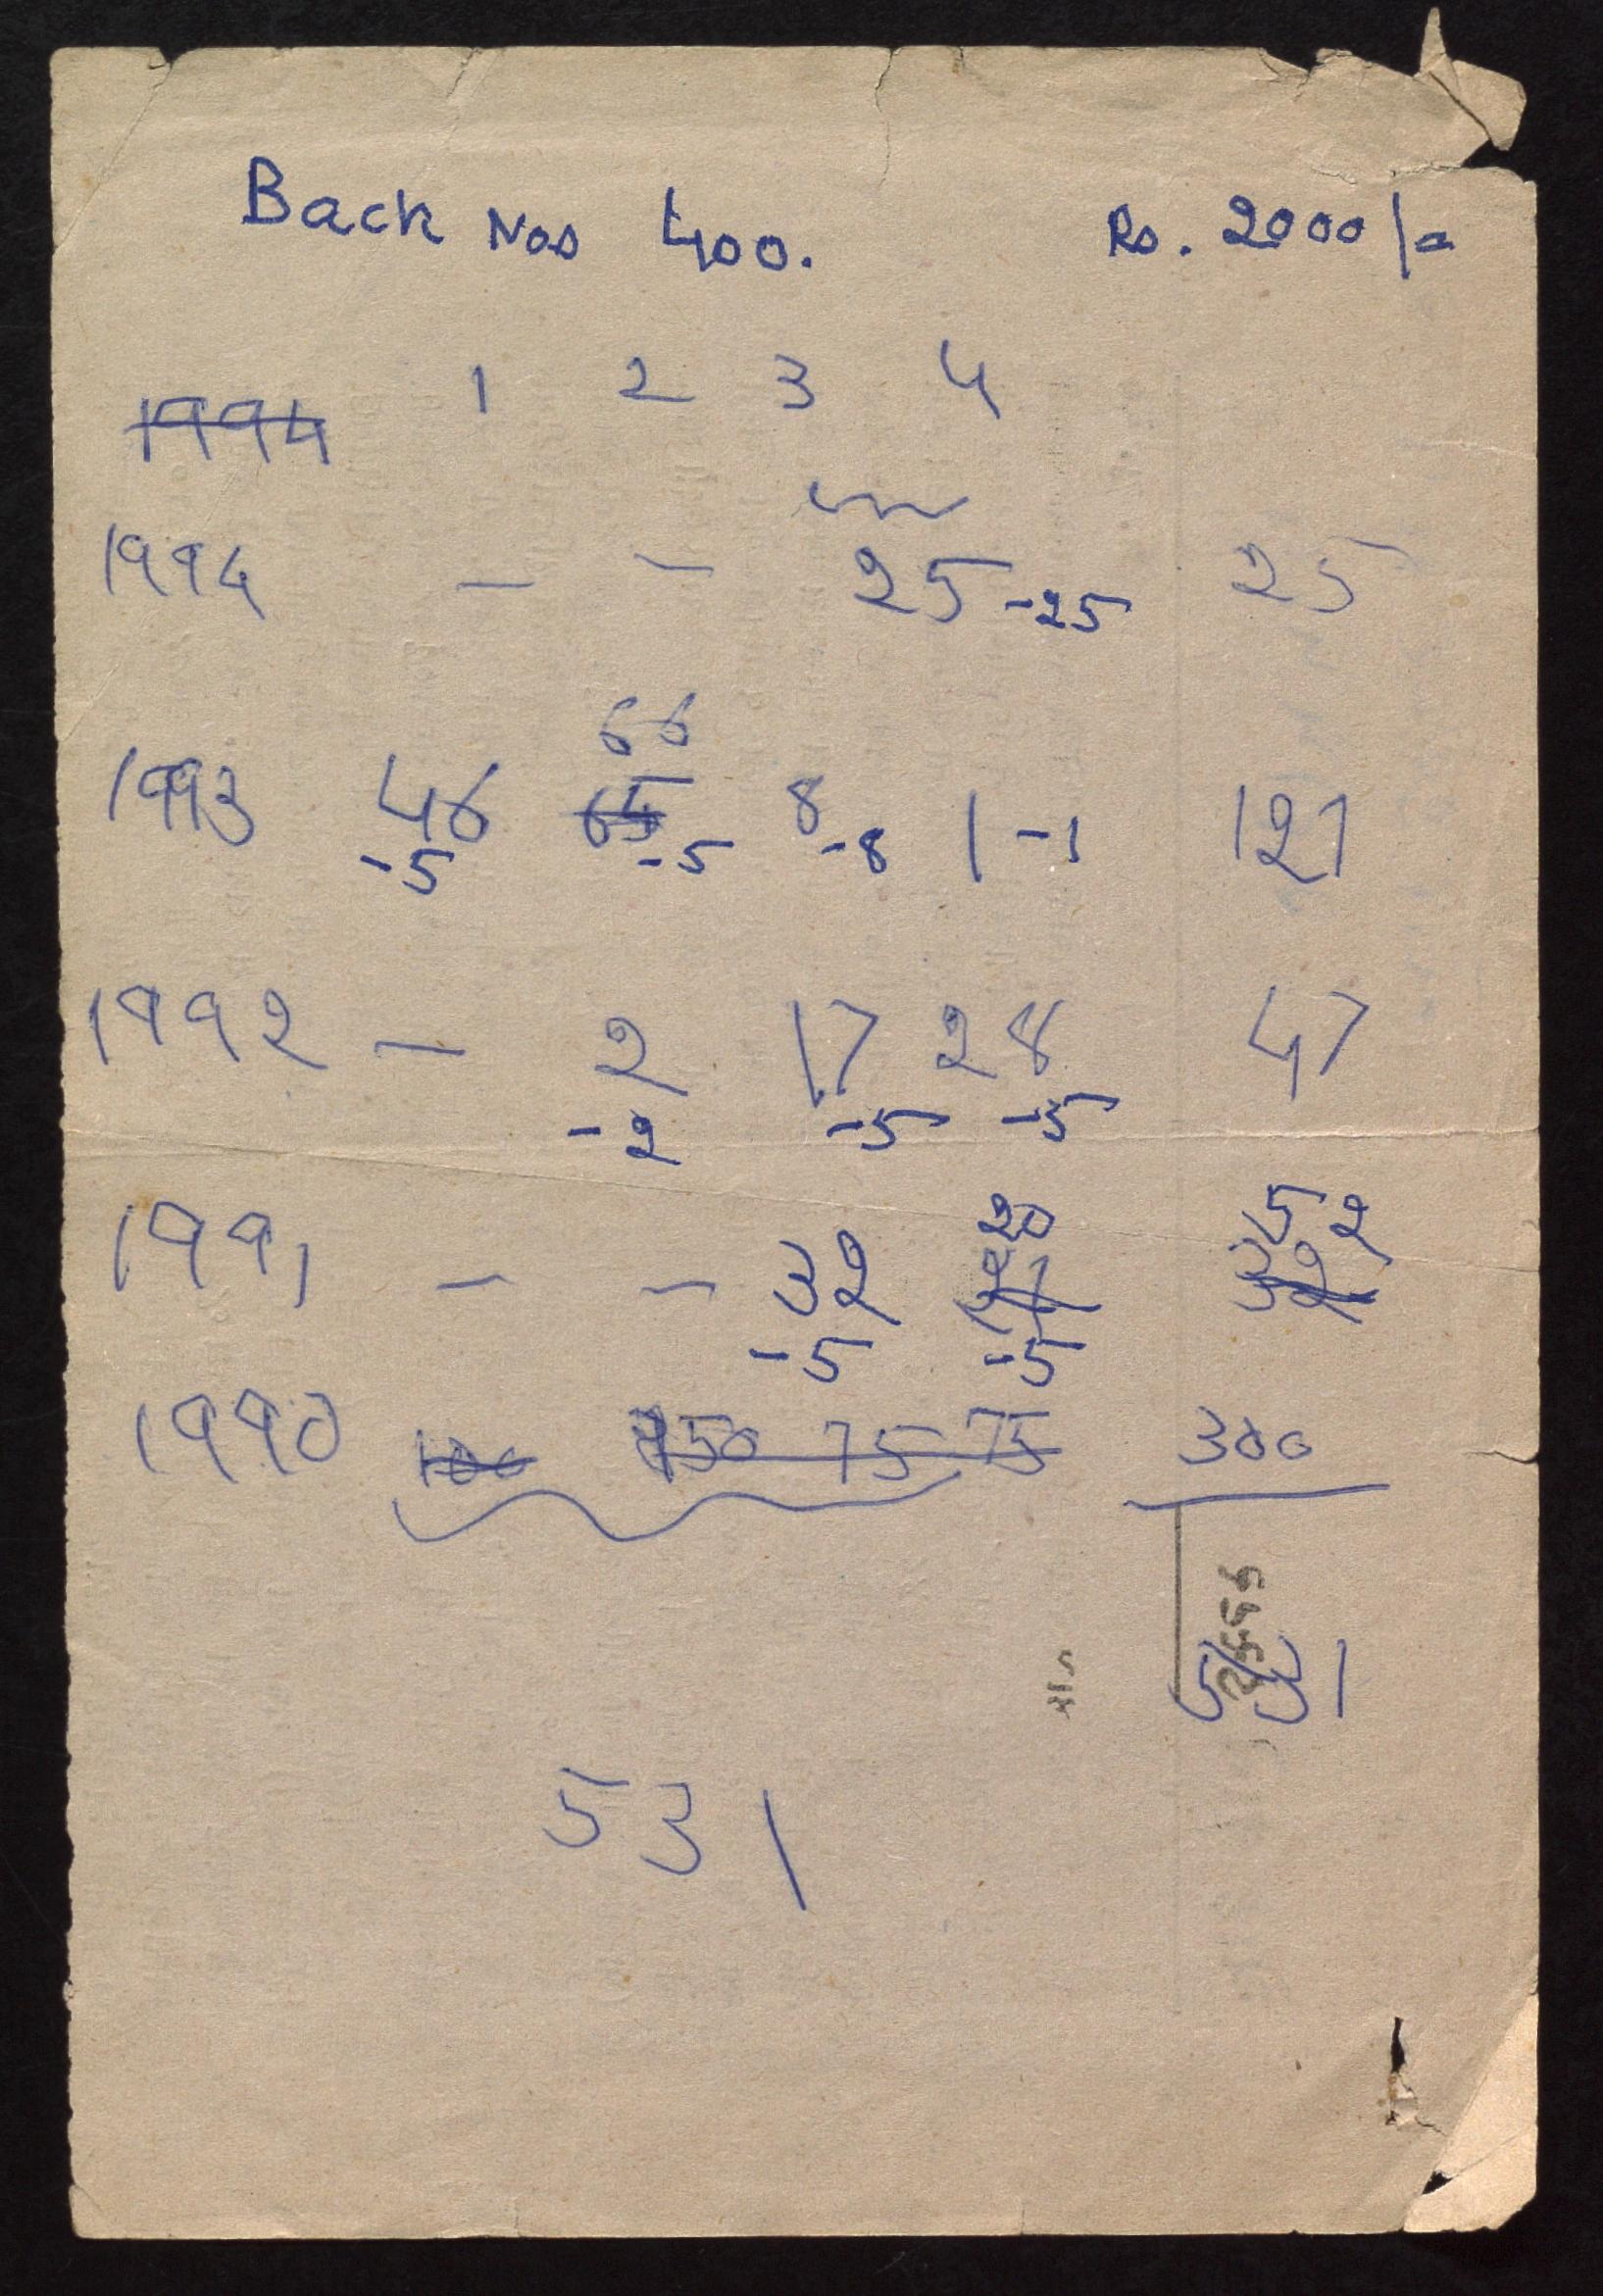 Back Nos 400. Rs. 2000/=
1 2 3 4
1994
1994 — — 25 -25 25
66
1993 46 65 8 1 -1 121
-5 -5 -8
1992 — 2 17 28 47
-2 -5 -5
20 52
1991 — — 32 32
-5 -5
1990 100 150 75 75 300
531
531